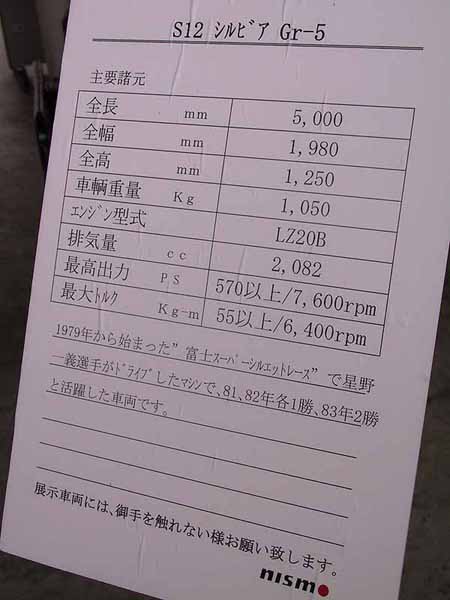 S12 ｼﾙﾋﾞｱ Gr-5
主要諸元
全長 mm 5,000
全幅 mm 1,980
全高 mm 1,250
車輌重量 Kg 1,050
ｴﾝｼﾞﾝ型式 LZ20B
排気量 cc 2,082
最高出力 PS 570以上/7,600rpm
最大ﾄﾙｸ Kg-m 55以上/6,400rpm
1979年から始まった”富士ｽｰﾊﾟｰｼﾙｴｯﾄﾚｰｽ”で星野
一義選手がﾄﾞﾗｲﾌﾞしたﾏｼﾝで、81､82年各1勝、83年2勝
と活躍した車両です。
展示車両には、御手を触れない様お願い致します。
nismo